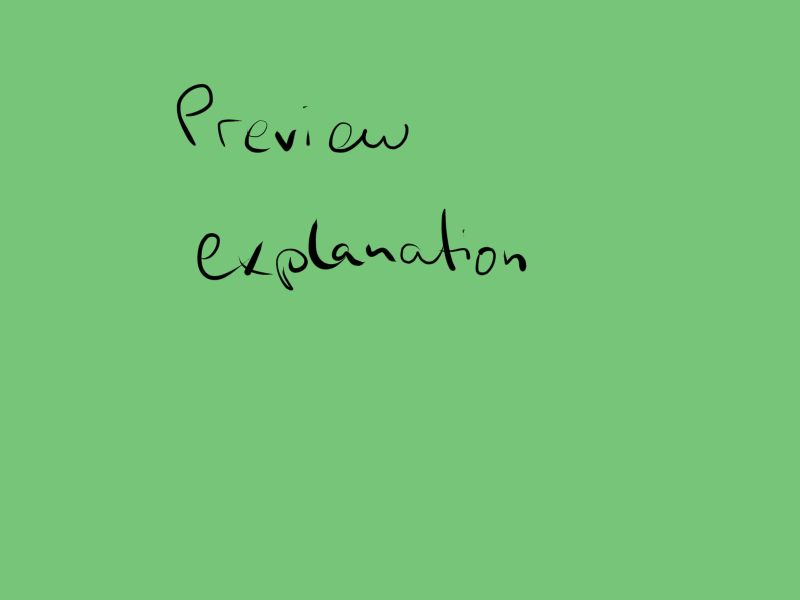 Preview
explanation